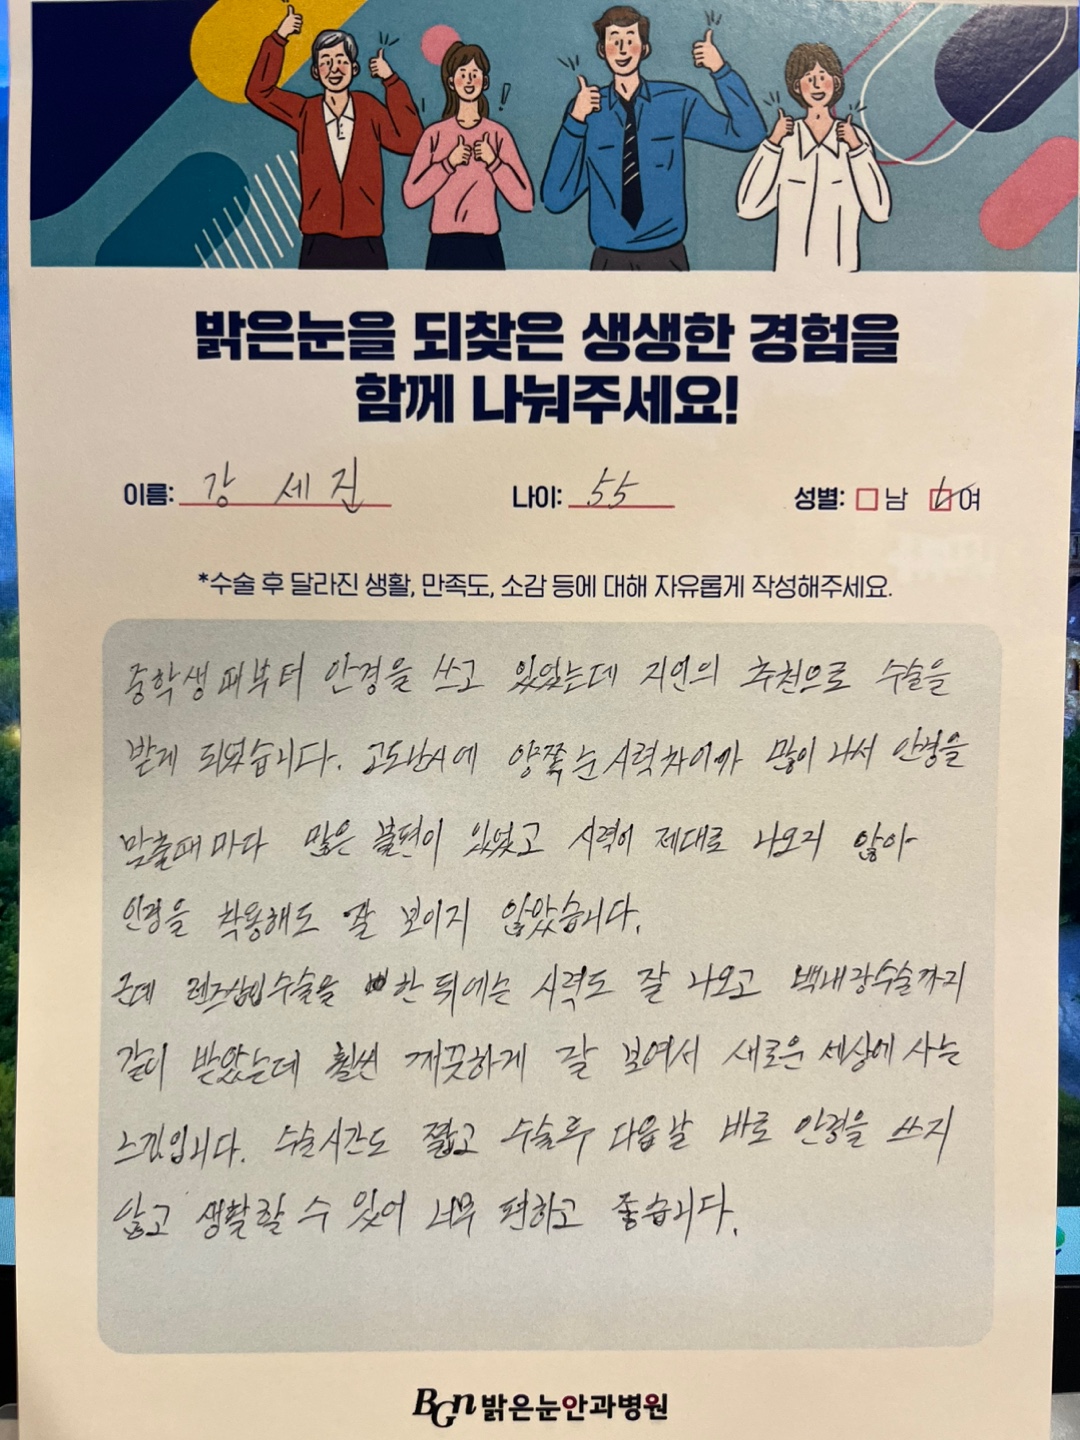 밝은눈을 되찾은 생생한 경험을
함께 나눠주세요!
이름: 강 세진 나이: 55 성별: 남 여
*수술 후 달라진 생활, 만족도, 소감 등에 대해 자유롭게 작성해주세요.
중학생때부터 안경을 쓰고 있었는데 지인의 추천으로 수술을
받게 되었습니다. 고도난시에 양쪽눈 시력차이가 많이 나서 안경을
맞출때마다 많은 불편이 있었고 시력이 제대로 나오지 않아
안경을 착용해도 잘 보이지 않았습니다.
근데 렌즈삽입수술을 한 뒤에는 시력도 잘 나오고 백내장수술까지
같이 받았는데 훨씬 깨끗하게 잘 보여서 새로운 세상에 사는
느낌입니다. 수술시간도 짧고 수술후 다음날 바로 안경을 쓰지
않고 생활할 수 있어 너무 편하고 좋습니다.
BGN 밝은눈안과병원